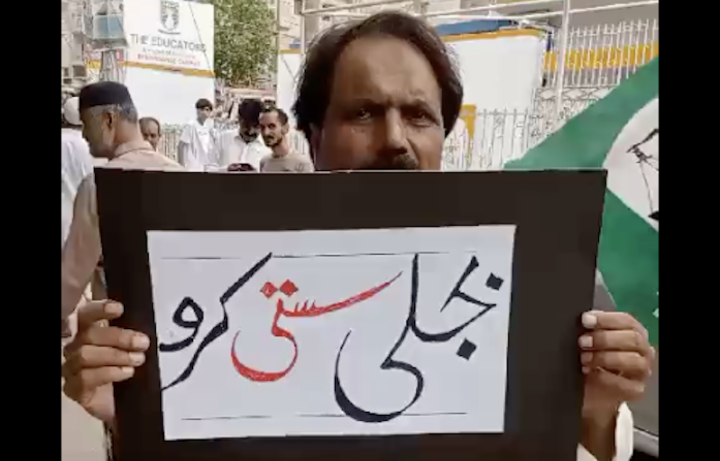 THE EDUCATORS
بجلی سستی کرو